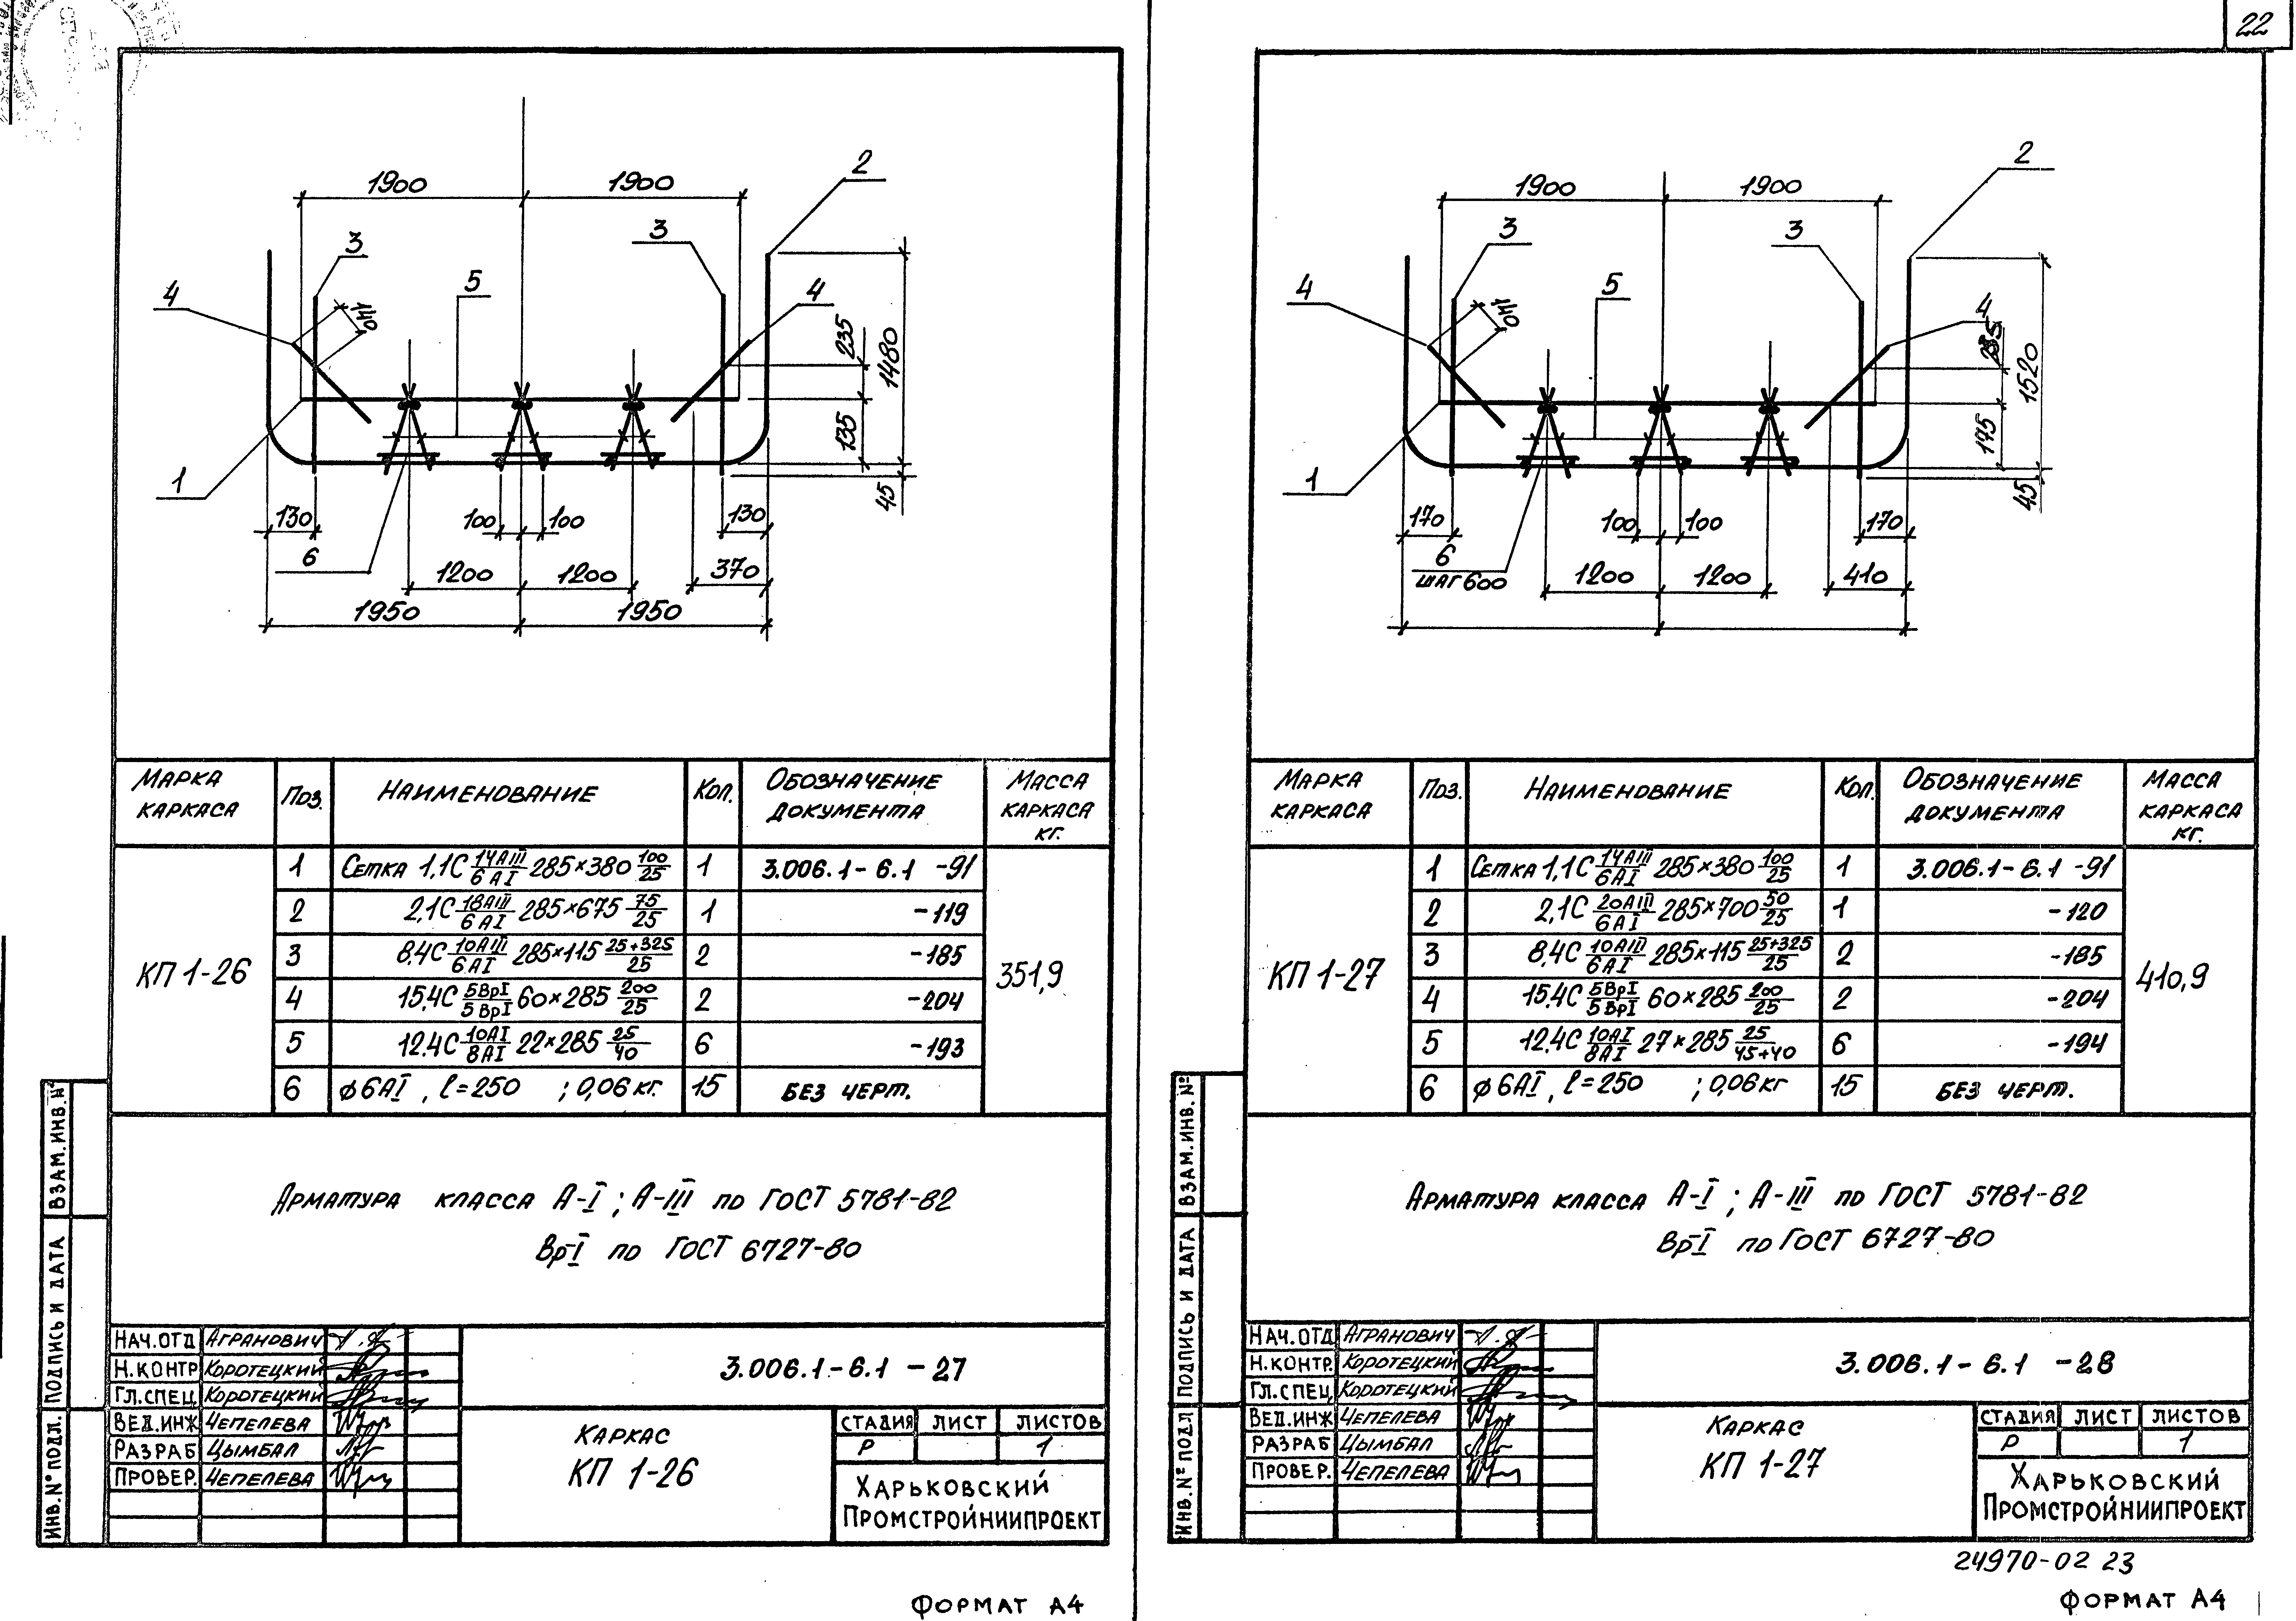 22
1900 1900
2
3
3
4
5
4
140
235
1480
135
45
1
130
100 100
130
6
1200 1200
370
1950 1950
Марка каркаса Поз. Наименование Кол. Обозначение документа Масса каркаса кг.
КП 1-26 351,9
1 Сетка 1,1С 14АIII/6АI 285×380 100/25 1 3.006.1-6.1 -91
2 2,1С 18АIII/6АI 285×675 75/25 1 -119
3 8.4С 10АIII/6АI 285×115 25+325/25 2 -185
4 15.4С 5ВрI/5ВрI 60×285 200/25 2 -204
5 12.4С 10АI/8АI 22×285 25/40 6 -193
6 ϕ6АI, l=250 ; 0,06 кг. 15 без черт.
Арматура класса А-I; А-III по ГОСТ 5781-82
Вр-I по ГОСТ 6727-80
Нач.отд Агранович
Н.контр Коротецкий
Гл.спец. Коротецкий
Вед.инж Чепелева
Разраб Цымбал
Провер. Чепелева
3.006.1-6.1 -27
Каркас
КП 1-26
Стадия Лист Листов
Р 1
Харьковский
Промстройниипроект
Взам.инв.№
Подпись и дата
Инв.№ подл.
Формат А4
1900 1900
2
3
3
4
5
4
140
1520
175
45
1
170
100 100
170
6
шаг 600
1200 1200
410
Марка каркаса Поз. Наименование Кол. Обозначение документа Масса каркаса кг.
КП 1-27 410,9
1 Сетка 1,1С 14АIII/6АI 285×380 100/25 1 3.006.1-6.1 -91
2 2,1С 20АIII/6АI 285×700 50/25 1 -120
3 8,4С 10АIII/6АI 285×115 25+325/25 2 -185
4 15.4С 5ВрI/5ВрI 60×285 200/25 2 -204
5 12.4С 10АI/8АI 27×285 25/45+40 6 -194
6 ϕ6АI, l=250 ; 0,06 кг 15 без черт.
Арматура класса А-I; А-III по ГОСТ 5781-82
Вр-I по ГОСТ 6727-80
Нач.отд Агранович
Н.контр. Коротецкий
Гл.спец. Коротецкий
Вед.инж Чепелева
Разраб Цымбал
Провер. Чепелева
3.006.1-6.1 -28
Каркас
КП 1-27
Стадия Лист Листов
Р 1
Харьковский
Промстройниипроект
Взам.инв.№
Подпись и дата
Инв.№ подл
24970-02 23
Формат А4